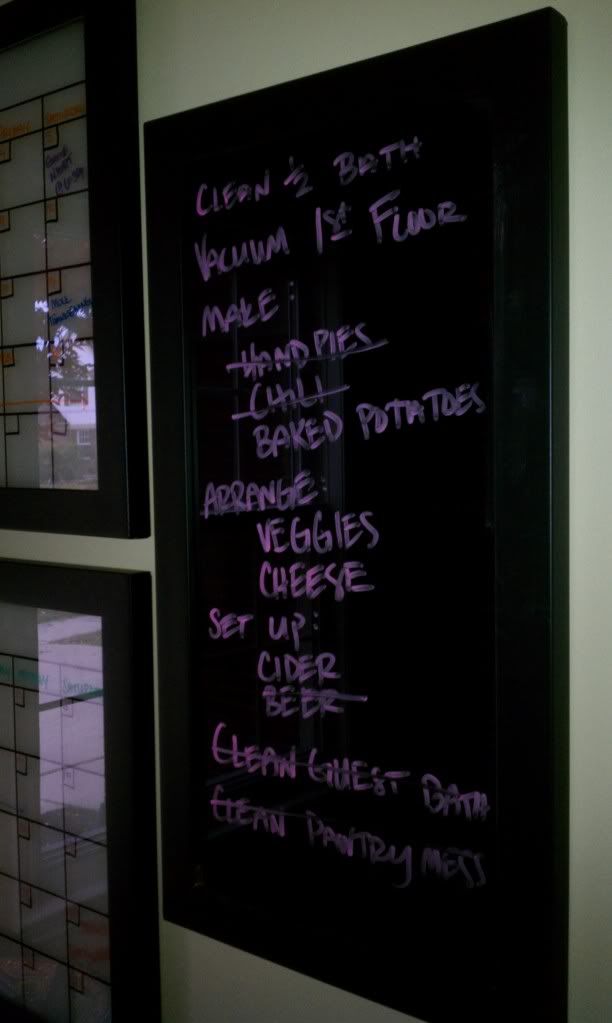 CLEAN ½ BATH
VACUUM 1st FLOOR
MAKE:
HAND PIES
CHILI
BAKED POTATOES
ARRANGE:
VEGGIES
CHEESE
SET UP:
CIDER
BEER
CLEAN GUEST BATH
CLEAN PANTRY MESS
SATURDAY
SATURDAY